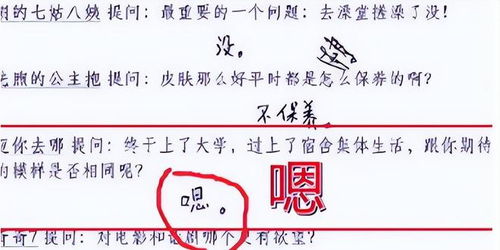 的七姑八姨 提问：最重要的一个问题：去澡堂搓澡了没！
没。
的公主抱 提问：皮肤那么好平时都是怎么保养的啊？
不保养。
你去哪 提问：终于上了大学，过上了宿舍集体生活，跟你期待
的模样是否相同呢？
嗯。
嗯
奇7 提问：对电影和话剧哪个更有欲望？